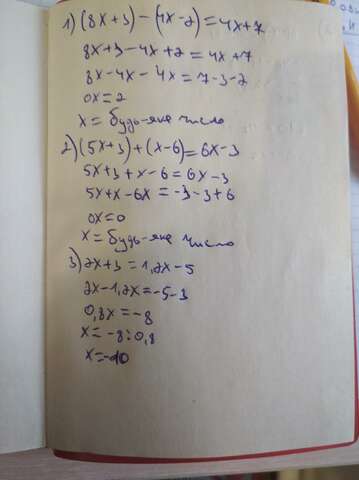 1) (8x+3)-(4x-2)=4x+7
8x+3-4x+2=4x+7
8x-4x-4x=7-3-2
0x=2
x= будь-яке число
2) (5x+3)+(x-6)=6x-3
5x+3+x-6=6x-3
5x+x-6x=-3-3+6
0x=0
x=будь-яке число
3) 2x+3=1,2x-5
2x-1,2x=-5-3
0,8x=-8
x=-8:0,8
x=-10